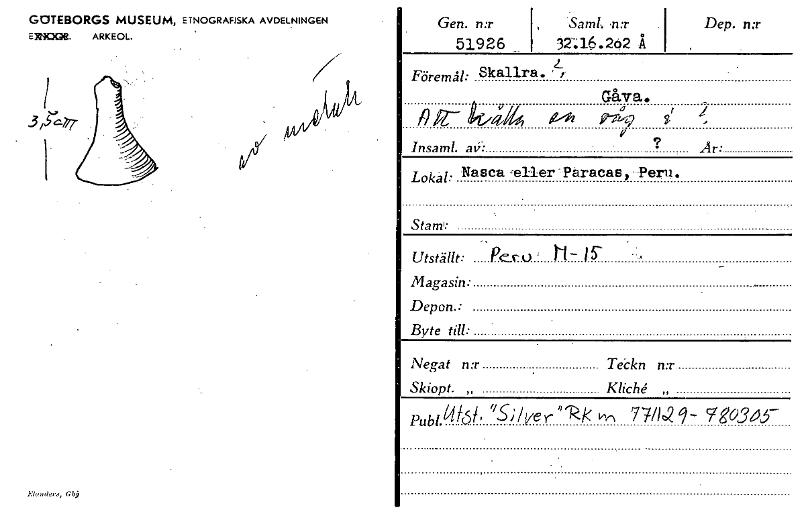 GÖTEBORGS MUSEUM, ETNOGRAFISKA AVDELNINGEN
ARKEOL.
3,5 cm
av metall
Elanders, Gbg
Gen. n:r
51926
Saml. n:r
32.16.262 Å
Dep. n:r
Föremål: Skallra. ?
Gåva.
Att hålla en våg i ?
Insaml. av: ? År:
Lokal: Nasca eller Paracas, Peru.
Stam:
Utställt: Peru M-15
Magasin:
Depon.:
Byte till:
Negat n:r Teckn n:r
Skiopt. „ Kliché „
Publ. Utst. "Silver" RKm 771129-780305